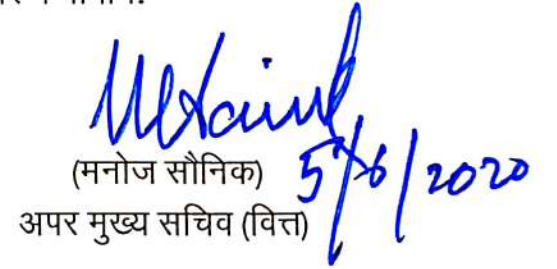 (मनोज सौनिक)
5/6/2020
अपर मुख्य सचिव (वित्त)